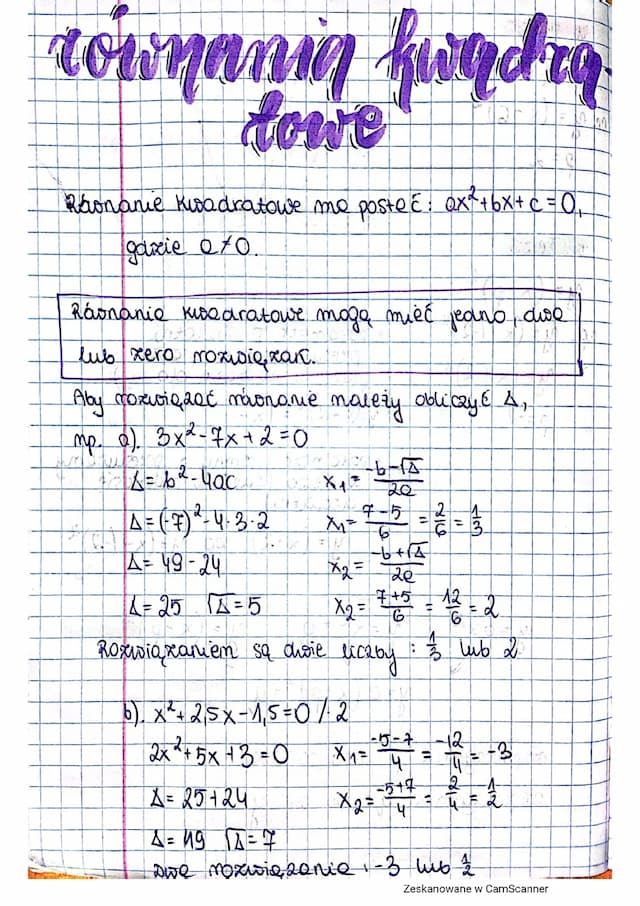 równania kwadra-
towe
Równanie kwadratowe ma postać: ax²+bx+c=0,
gdzie a≠0.
Równania kwadratowe mogą mieć jedno, dwa
lub zero rozwiązań.
Aby rozwiązać równanie należy obliczyć Δ,
np. a). 3x²-7x+2=0
Δ=b²-4ac x₁=\frac{-b-√Δ}{2a}
Δ=(-7)²-4·3·2 x₁=\frac{7-5}{6}=\frac{2}{6}=\frac{1}{3}
Δ=49-24 x₂=\frac{-b+√Δ}{2a}
Δ=25 √Δ=5 x₂=\frac{7+5}{6}=\frac{12}{6}=2
Rozwiązaniem są dwie liczby: \frac{1}{3} lub 2
b). x²+2,5x-1,5=0 /·2
2x²+5x+3=0 x₁=\frac{-5-7}{4}=\frac{-12}{4}=-3
Δ=25+24 x₂=\frac{-5+7}{4}=\frac{2}{4}=\frac{1}{2}
Δ=49 √Δ=7
Dwa rozwiązania: -3 lub \frac{1}{2}
Zeskanowane w CamScanner